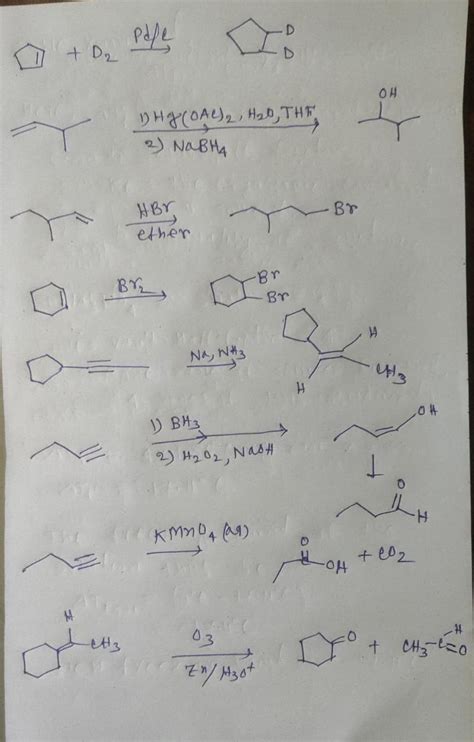 + D2 Pd/c D
D
1) Hg(OAc)2, H2O, THF OH
2) NaBH4
HBr Br
ether
Br2 Br
Br
Na, NH3 H
H CH3
1) BH3 OH
2) H2O2, NaOH
O
H
KMnO4 (aq) O
OH + CO2
H
CH3 O3 O + CH3-C=O
H
Zn/H3O+